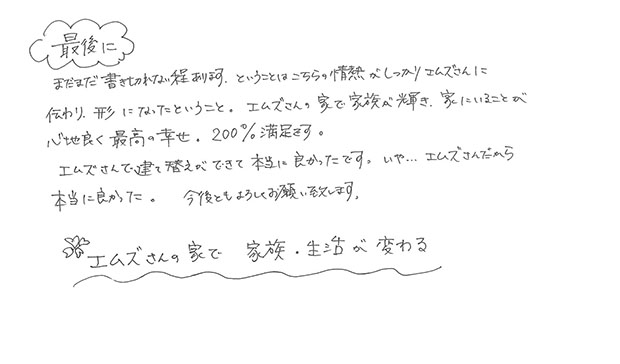 最後に
まだまだ書き切れない程あります。ということはこちらの情熱がしっかりエムズさんに
伝わり、形になったということ。エムズさんの家で家族が輝き、家にいることが
心地良く最高の幸せ。200%満足です。
エムズさんで建て替えができて本当に良かったです。いや…エムズさんだから
本当に良かった。 今後ともよろしくお願い致します。
エムズさんの家で 家族・生活が変わる